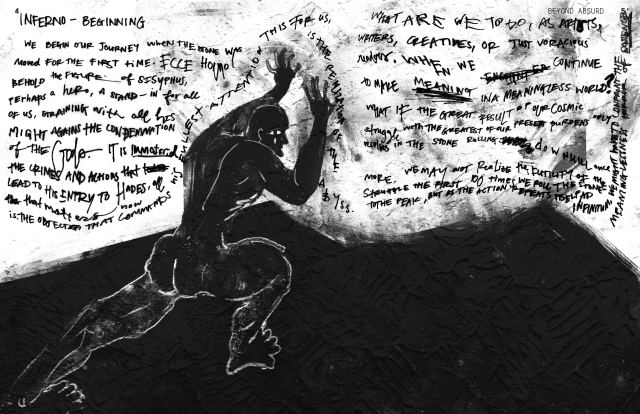 4
BEYOND ABSURD
5
INFERNO - BEGINNING
WE BEGIN OUR JOURNEY WHEN THE STONE WAS
MOVED FOR THE FIRST TIME. ECCE HOMO
BEHOLD THE FIGURE OF SISYPHUS,
PERHAPS A HERO, A STAND-IN FOR ALL
OF US, STRAINING WITH ALL HIS
MIGHT AGAINST THE CONDEMNATION
OF THE GODS. IT IS IMMATERIAL
THE CRIMES AND ACTIONS THAT
LEAD TO HIS ENTRY TO HADES, all
that matters now
IS THE OBJECT THAT COMMANDS
HIS FULLEST ATTENTION THIS FOR US,
IS THE REVELATION OF THE
ABYSS.
WHAT ARE WE TO DO, AS ARTISTS,
WRITERS, CREATIVES, OR JUST VORACIOUS
WHEN WE ENCOUNTER CONTINUE
TO MAKE MEANING IN A MEANINGLESS WORLD?
WHAT IF THE GREAT RESULT OF OUR COSMIC
struggle WITH THE GREATEST OF OUR PRESENT BURDENS only
IN THE STONE ROLLING down hill once
MORE. WE MAY NOT Realize THE FUTILITY OF the
STRUGGLE THE FIRST TIME WE ROLL THE STONE
TO THE PEAK, BUT AS THE ACTION REPEATS ITSELF AD
INFINITUM, WE MIGHT WANT TO